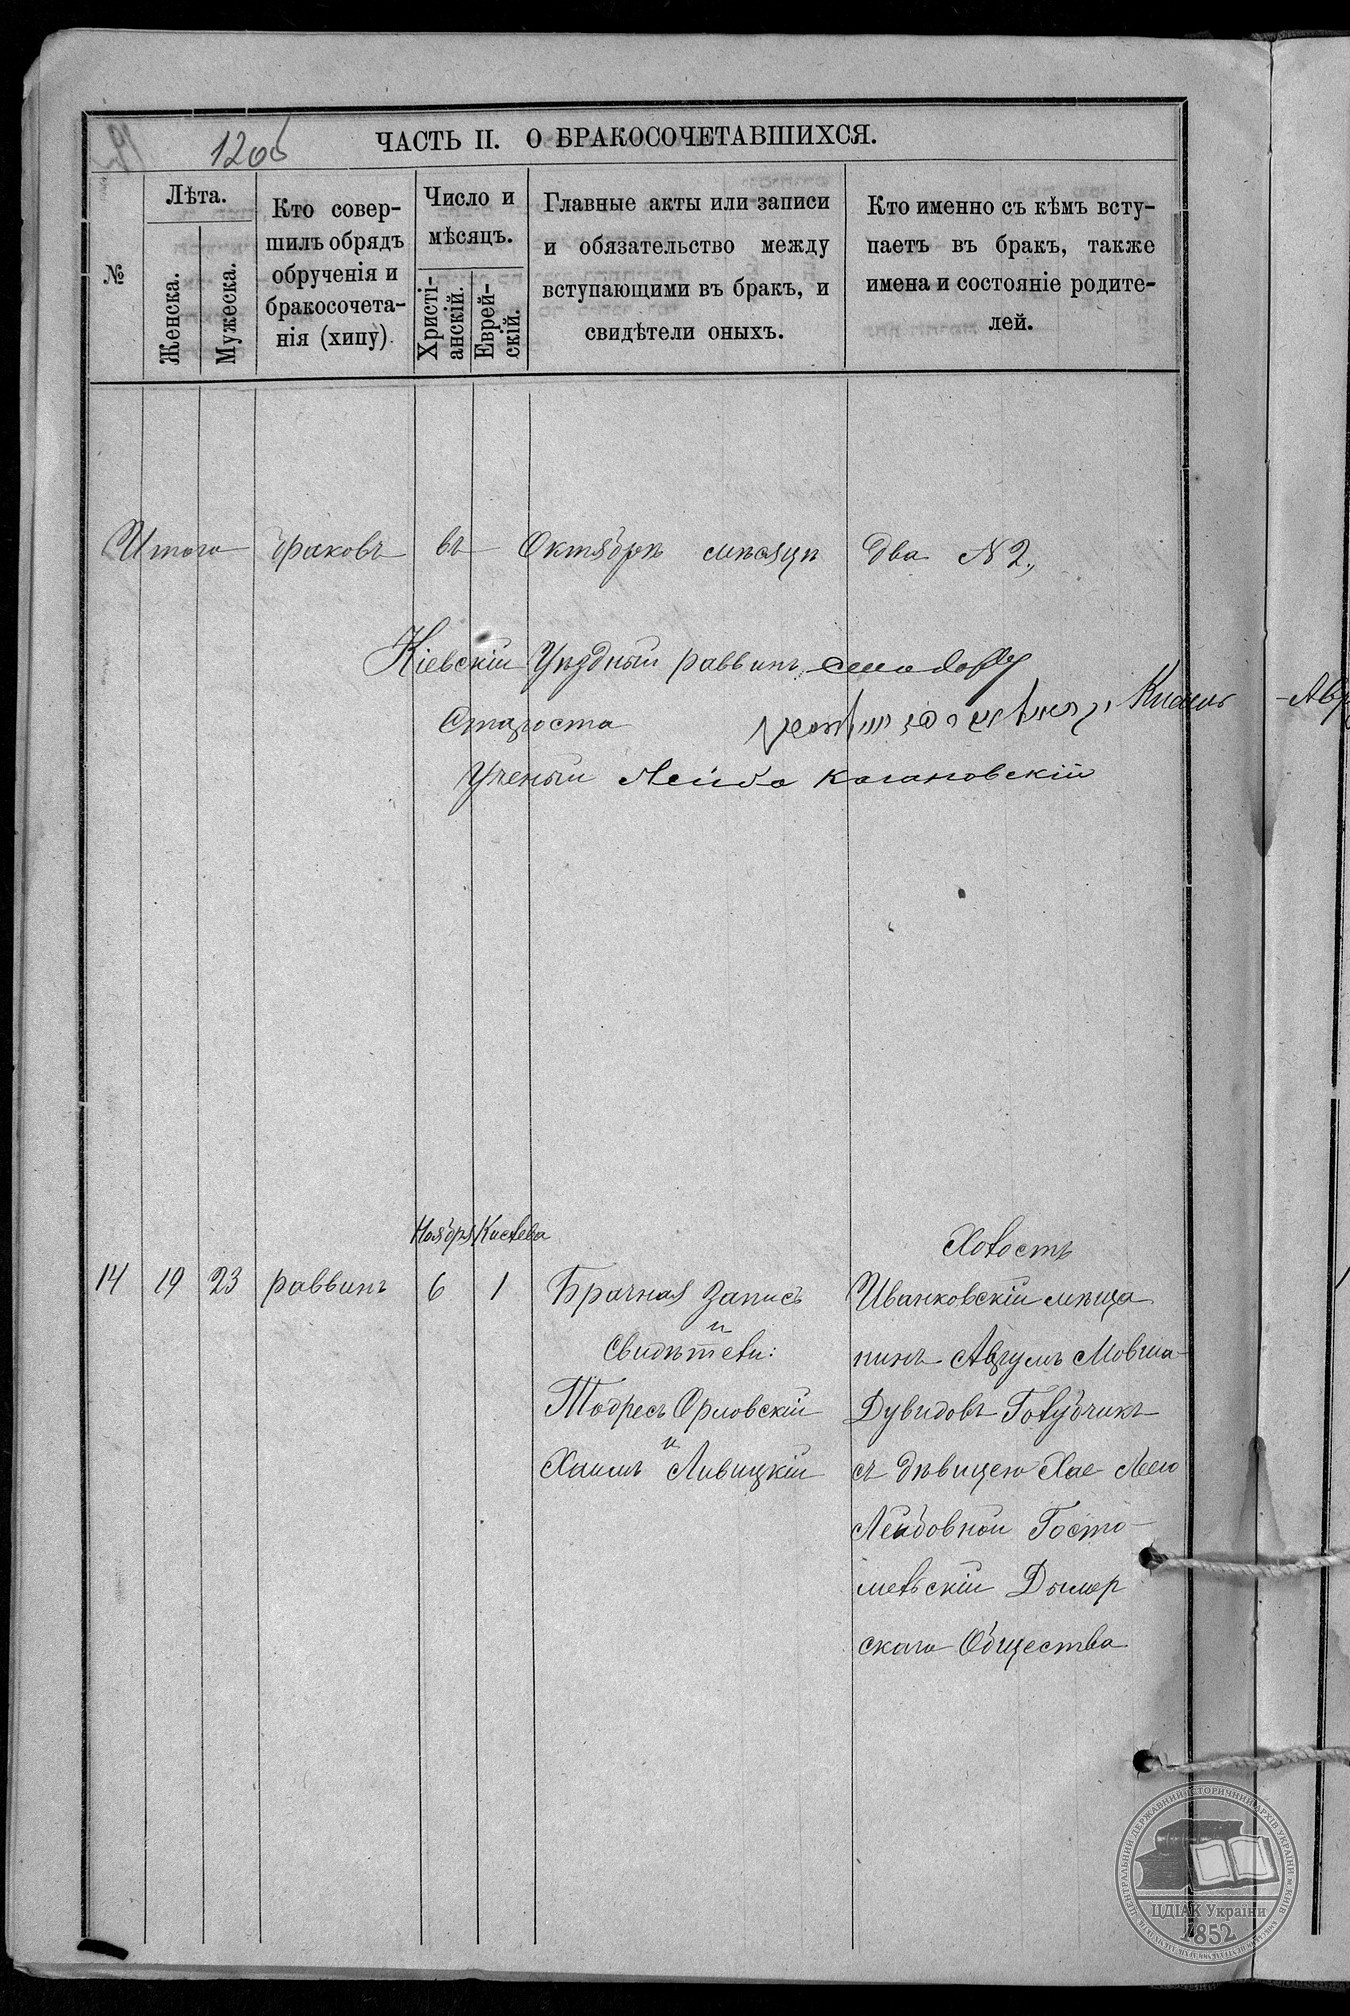 120б
ЧАСТЬ II. О БРАКОСОЧЕТАВШИХСЯ.
№
Лѣта.
Женска.
Мужеска.
Кто совер-
шилъ обрядъ
обрученія и
бракосочета-
нія (хипу)
Число и
мѣсяцъ.
Христі-
анскій.
Еврей-
скій.
Главные акты или записи
и обязательство между
вступающими въ бракъ, и
свидѣтели оныхъ.
Кто именно съ кѣмъ всту-
паетъ въ бракъ, также
имена и состояніе родите-
лей.
Итого браковъ въ Октябрѣ мѣсяцѣ два N 2,,
Кіевскій Уѣздный раввинъ
Староста
Ученый Лейба Кагановскій
Ноября Кислева
14 19 23 раввинъ 6 1
Брачная Запись
и
Свидѣтели:
Тодресъ Орловскій
и
Хаимъ Ливицкій
Холостъ
Иванковскій мѣща
нинъ Аврумъ Мовша
Дувидовъ Голубчикъ
съ дѣвицею Хае Леею
Лейбовной Госто-
мельскій Дымер
скаго Общества
ЦЕНТРАЛЬНИЙ ДЕРЖАВНИЙ ІСТОРИЧНИЙ АРХІВ УКРАЇНИ м. КИЇВ
ЦДІАК України
1852